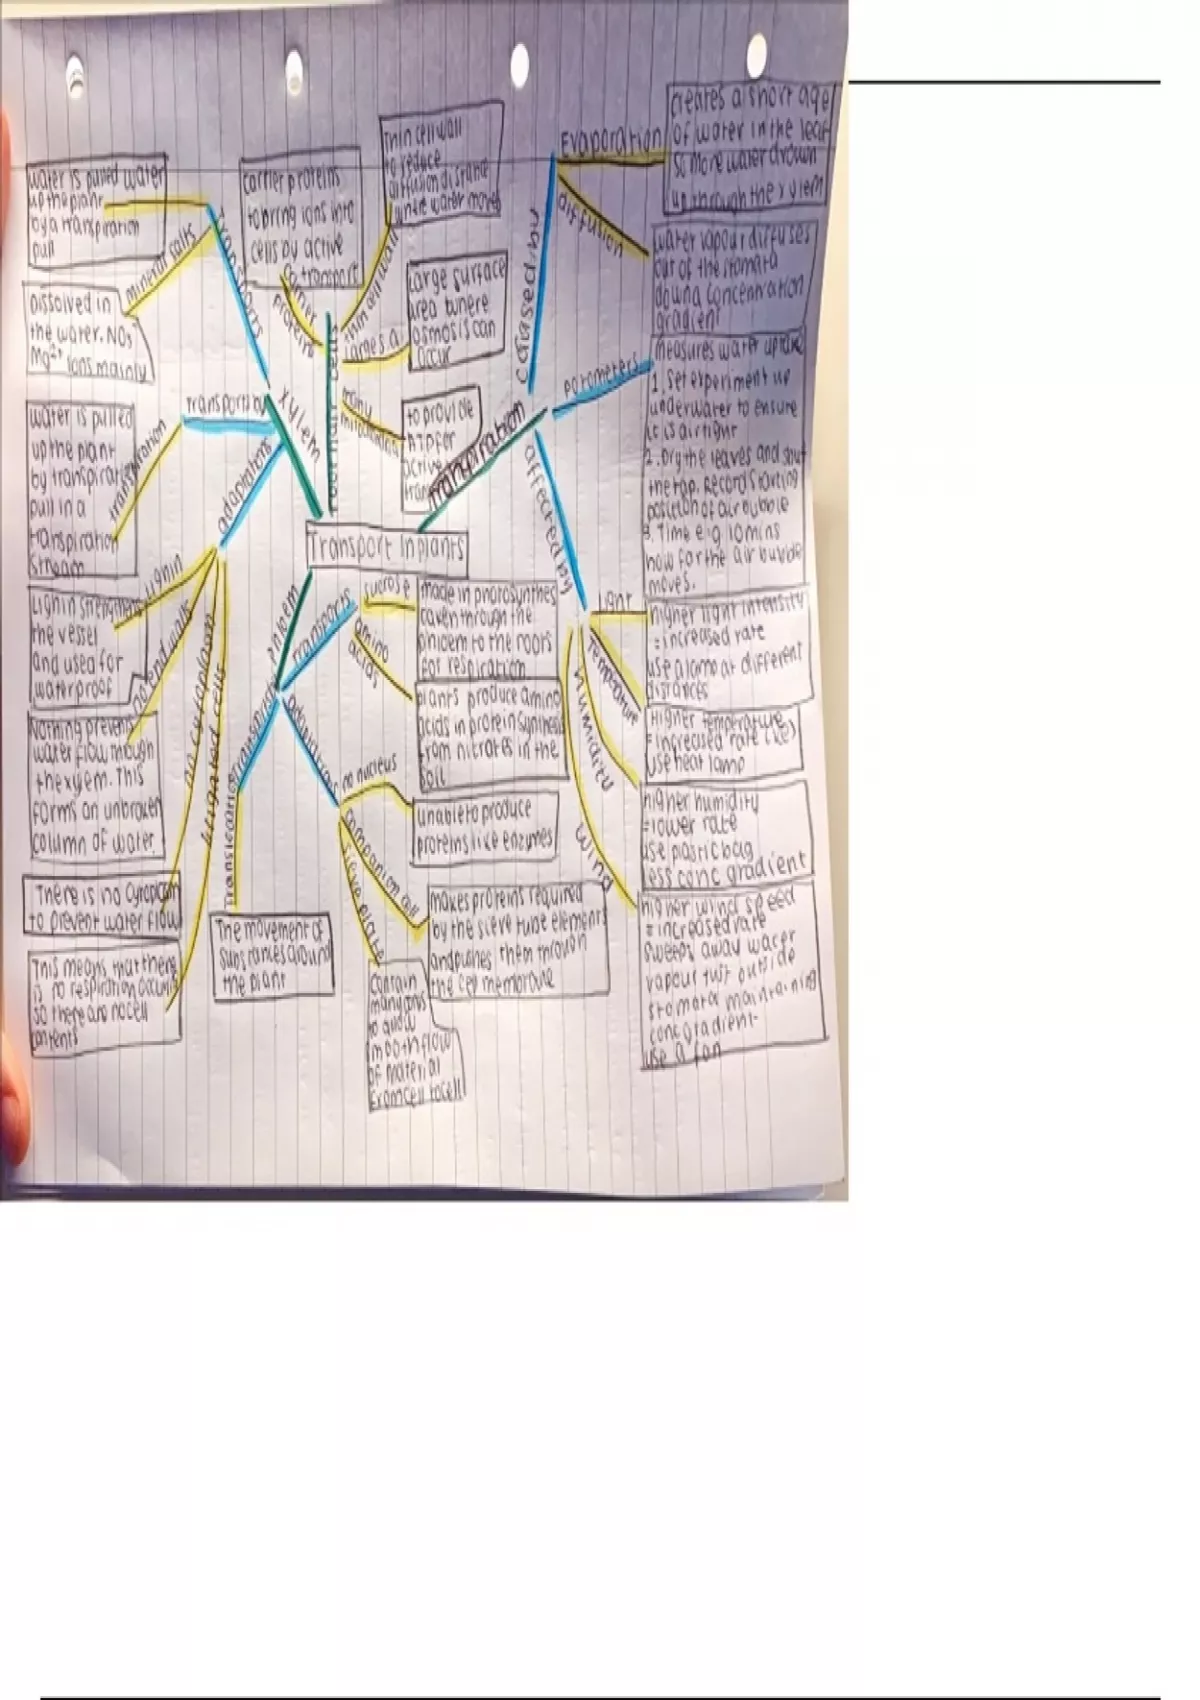 Transport In plants
xylem
transports
water
water is pulled
up the plant
by a transpiration
pull
mineral salts
Dissolved in
the water. NO3-
Mg2+ ions mainly
transports by
transpiration
water is pulled
up the plant
by transpiration
pull in a
transpiration
stream
adaptations
lignin
Lignin strengthens
the vessel
and used for
waterproof
no end walls
Nothing prevents
water flow through
the xylem. This
forms an unbroken
column of water.
no cytoplasm
There is no cytoplasm
to prevent water flow
This means that there
is no respiration
so there are no cell
contents
root hair cells
carrier
proteins
carrier proteins
to bring ions into
cells by active
transport
thin cell wall
Thin cell wall
to reduce
diffusion distance
large s.a
Large surface
area
osmosis can
occur
many
mitochondria
to provide
ATP for
active
transpiration
caused by
Evaporation
creates a shortage
of water in the leaf
so more water drawn
up through the xylem
diffusion
water vapour diffuses
out of the stomata
down a concentration
gradient
potometers
measures water uptake
1. Set experiment up
underwater to ensure
it is airtight
2. Dry the leaves and shut
the tap. Record starting
position of air bubble
3. Time e.g 10mins
how far the air bubble
moves.
affected by
light
higher light intensity
= increased rate
use a lamp at different
distances
temperature
Higher temperature
= increased rate (KE)
use heat lamp
humidity
higher humidity
= lower rate
use plastic bag
less conc gradient
wind
higher wind speed
= increased rate
sweeps away water
vapour just outside
stomata maintaining
conc gradient-
use a fan
phloem
transports
sucrose
made in photosynthesis
through the
phloem to the roots
for respiration
amino
acids
plants produce amino
acids in protein synthesis
from nitrates in the
soil
transports by
translocation
The movement of
substances around
the plant
adaptations
no nucleus
unable to produce
proteins like enzymes
companion cell
makes proteins required
by the sieve tube elements
and pushes them through
the cell membrane
sieve plate
contain
many
to allow
smooth flow
of material
from cell to cell